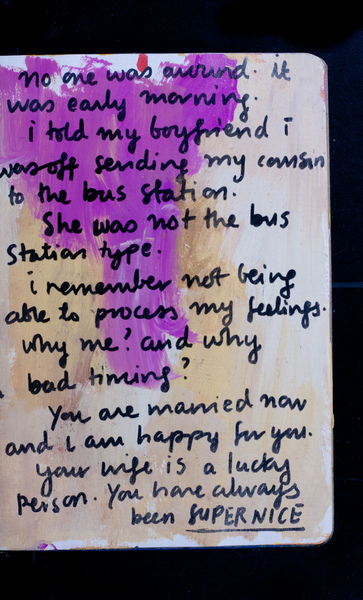 no one was around. it
was early morning.
i told my boyfriend i
was off sending my cousin
to the bus station.
She was not the bus
station type.
i remember not being
able to process my feelings.
why me? and why
bad timing?
You are married now
and i am happy for you.
your wife is a lucky
person. You have always
been SUPER NICE